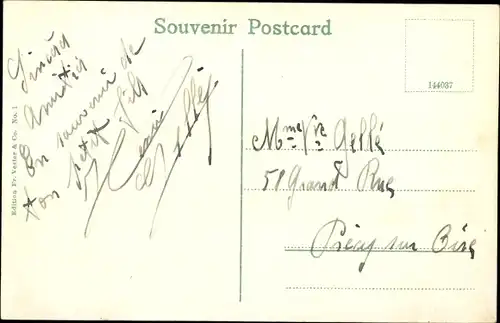 Souvenir Postcard
144037
Edition Fr. Vetter & Co. No. 1
Amitiés
En souvenir de
ton petit fils
Gellé
Mme Vve Gellé
51 Grand Rue
Précy sur Oise